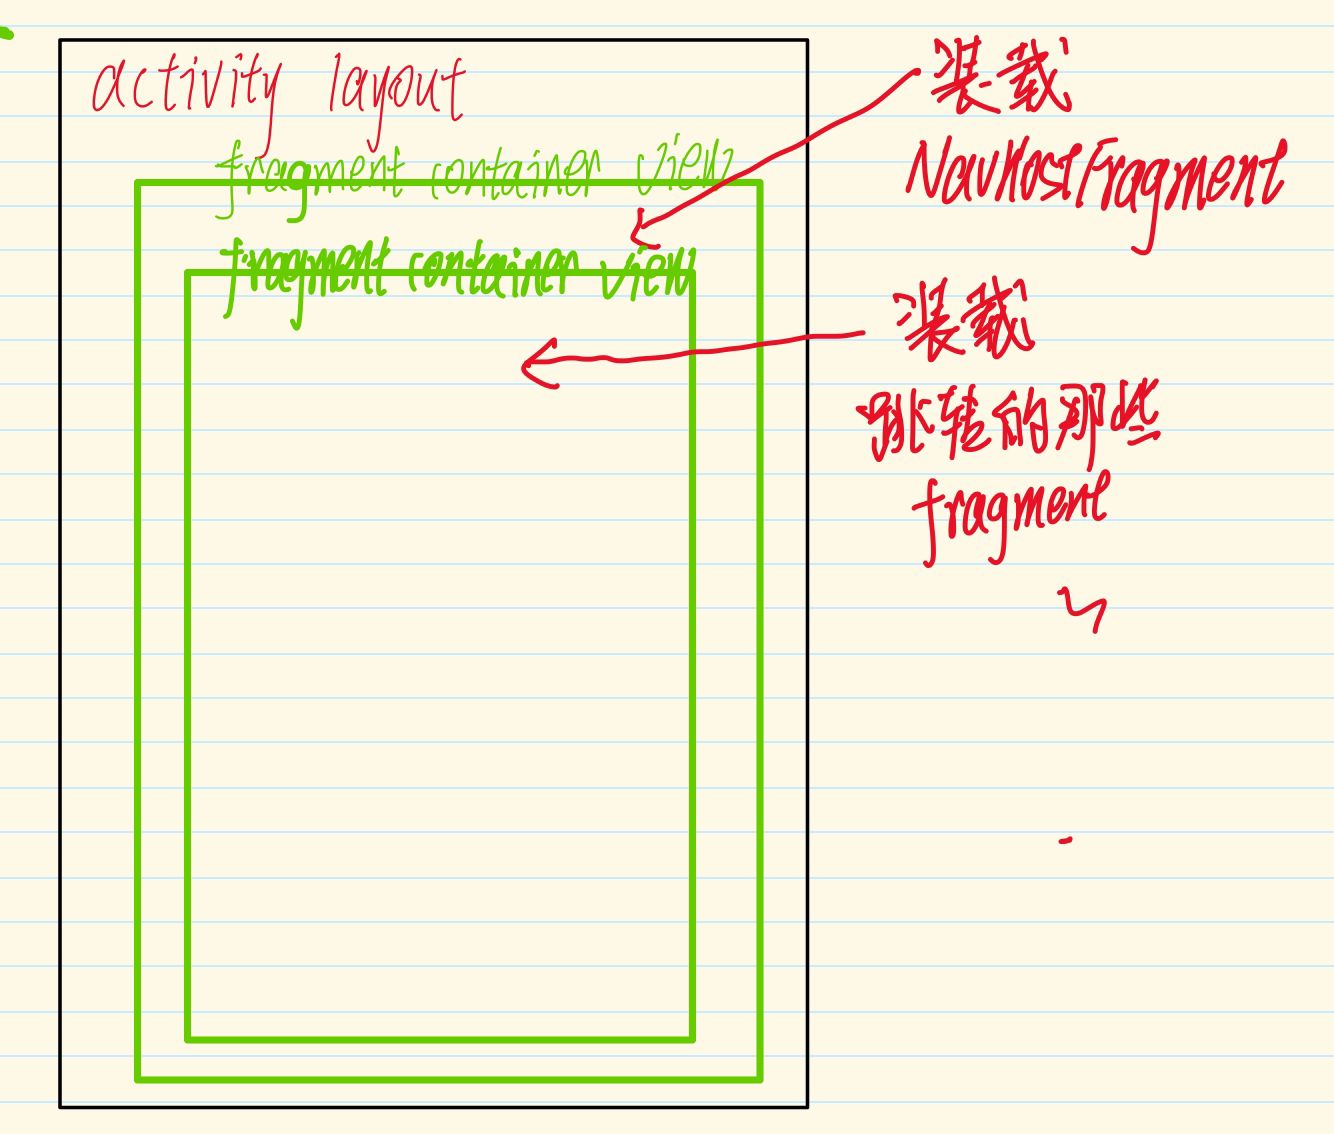 activity layout
fragment container view
fragment container view
装载
NavHostFragment
装载
跳转的那些
fragment